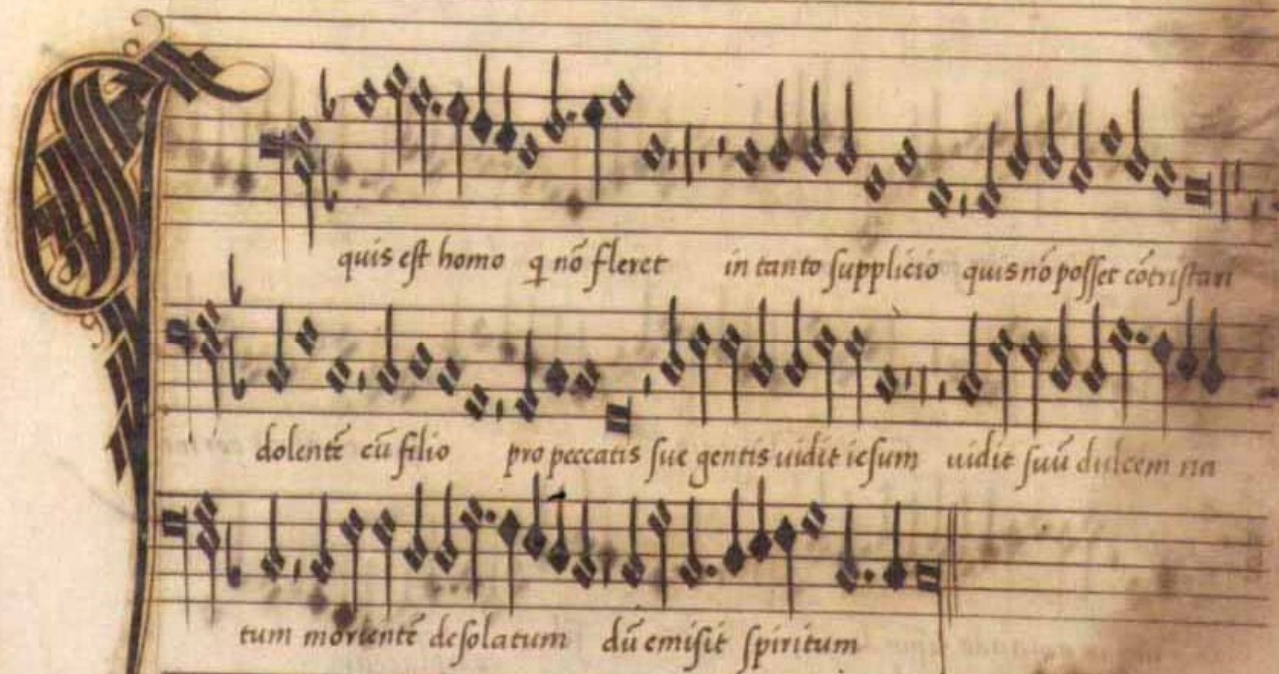 quis est homo q̃ nõ fleret in tanto supplicio quis nõ posset cõtristari
dolentẽ cũ filio pro peccatis sue gentis uidit iesum uidit suũ dulcem na
tum morientẽ desolatum dũ emisit spiritum